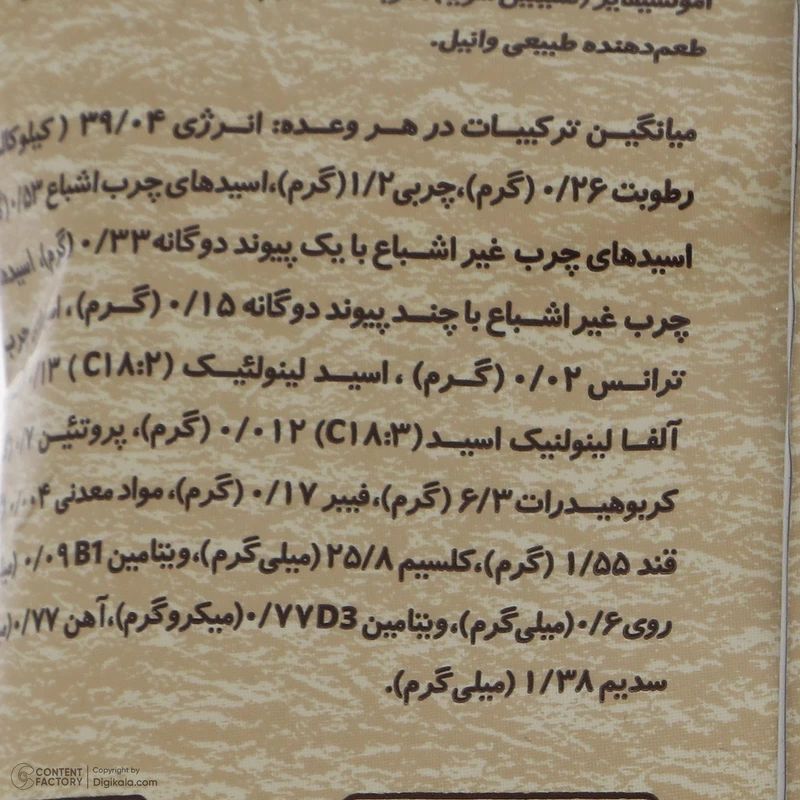 طعم‌دهنده طبیعی وانیل.
میانگین ترکیبات در هر وعده: انرژی ۳۹/۰۴ (کیلوکال
رطوبت ۰/۲۶ (گرم)،چربی۱/۲(گرم)،اسیدهای چرب اشباع ۰/۵۳
اسیدهای چرب غیر اشباع با یک پیوند دوگانه ۰/۳۳ (گرم)، اسیده
چرب غیر اشباع با چند پیوند دوگانه ۰/۱۵ (گرم)،
ترانس ۰/۰۲ (گرم) ، اسید لینولئیک (C۱۸:۲)
آلفا لینولنیک اسید (C۱۸:۳) ۰/۰۱۲ (گرم)، پروتئین ۰/۷
کربوهیدرات ۶/۳ (گرم)،فیبر ۰/۱۷ (گرم)، مواد معدنی
قند ۱/۵۵ (گرم)،کلسیم ۲۵/۸ (میلی‌گرم)،ویتامین B1 ۰/۰۹
روی ۰/۶(میلی‌گرم)،ویتامین D3 ۰/۷۷(میکروگرم)،آهن ۰/۷۷
سدیم ۱/۳۸ (میلی‌گرم).
CONTENT FACTORY
Copyright by
Digikala.com